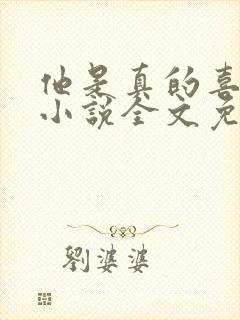 他是真的喜
小說全文免
劉婆婆